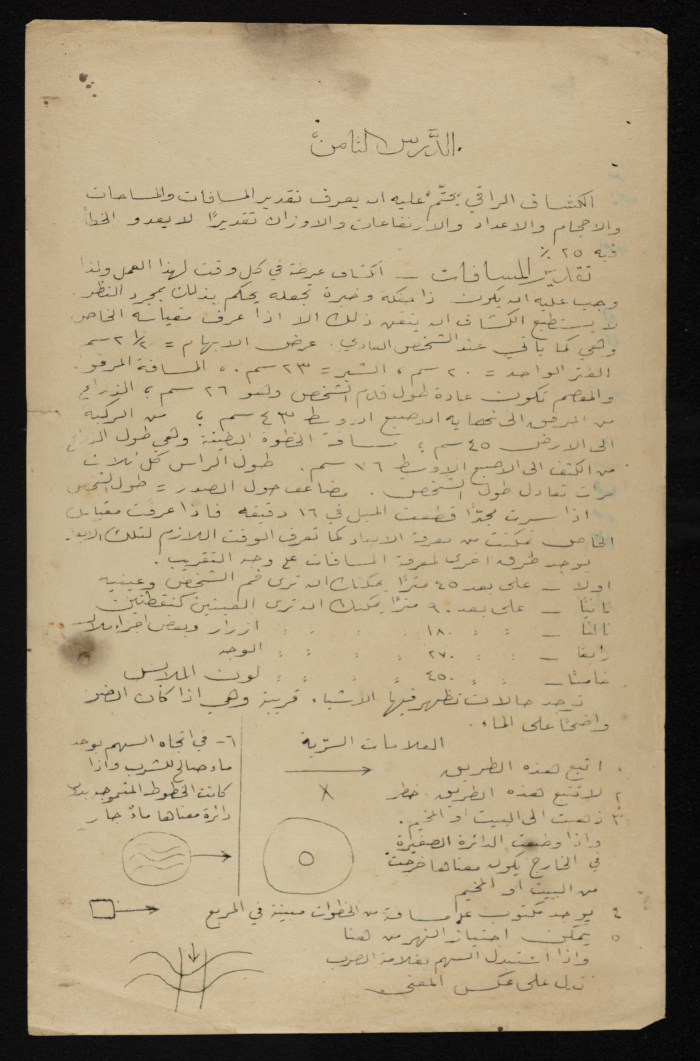 الدَّرس الثامن
الكشاف الراقي يحتّم عليه ان يعرف تقدير المسافات والمساحات
والاحجام والاعداد والارتفاعات والاوزان تقديرًا لا يعدو الخطأ
فيه ٢٥ ٪
تقدير المسافات ــ الكشاف عرضة في كل وقت لهذا العمل ولذا
وجب عليه ان يكون ذا حنكة وخبرة تجعله يحكم بذلك بمجرد النظر.
لا يستطيع الكشاف ان يتقن ذلك الا اذا عرف مقياسه الخاص
وهي كما يأتي عند الشخص العادي. عرض الابهام = ٢ ١/٢ سم
الفتر الواحد = ٢٠ سم، الشبر = ٢٣ سم.، المسافة المرفق
والمعصم تكون عادة طول قدم الشخص وهو ٢٦ سم، الذراع
من المرفق الى نهاية الاصبع الاوسط ٤٣ سم، من الركبة
الى الارض ٤٥ سم، مسافة الخطوة البطيئة وهي طول الذراع
من الكتف الى الاصبع الاوسط ٧٦ سم. طول الراس كل ثلاث
مرات تعادل طول الشخص. مضاعف حول الصدر = طول الشخص
اذا سرت مجدًّا قطعت الميل في ١٦ دقيقه فاذا عرفت مقياسك
الخاص تمكنت من معرفة الابعاد كما تعرف الوقت اللازم لتلك الابعاد
يوجد طرق اخرى لمعرفة المسافات على وجه التقريب.
اولا ــ على بعد ٤٥ مترًا يمكنك ان ترى فم الشخص وعينيه
ثانيًا ــ على بعد ٩٠ مترًا يمكنك ان ترى العينين كنقطتين
ثالثًا ــ : : ١٨٠ : : : : ازرار وبعض اجزاء الملابس
رابعًا ــ : : ٢٧٠ : : : : الوجه
خامسًا ــ : : ٤٥٠ : : : : لون الملابس
توجد حالات تظهر فيها الاشياء قريبة وهي اذا كان الضوء
واضحًا على الماء.
العلامات السرّية
١ اتبع هذه الطريق
٢ لا تتبع هذه الطريق خطر X
٣ ذهبت الى البيت او المخيم.
واذا وضعت الدائرة الصغيرة
في الخارج يكون معناها خرجت
من البيت او المخيم
٤ يوجد مكتوب على مسافة من الخطوات مبينة في المربع
٥ يمكن اجتياز النهر من هنا
واذا استبدل السهم بعلامة الضرب
تدل على عكس المعنى
٦ ـ في اتجاه السهم يوجد
ماء صالح للشرب واذا
كانت الخطوط المتموجه بدون
دائرة معناها ماءٌ جارٍ